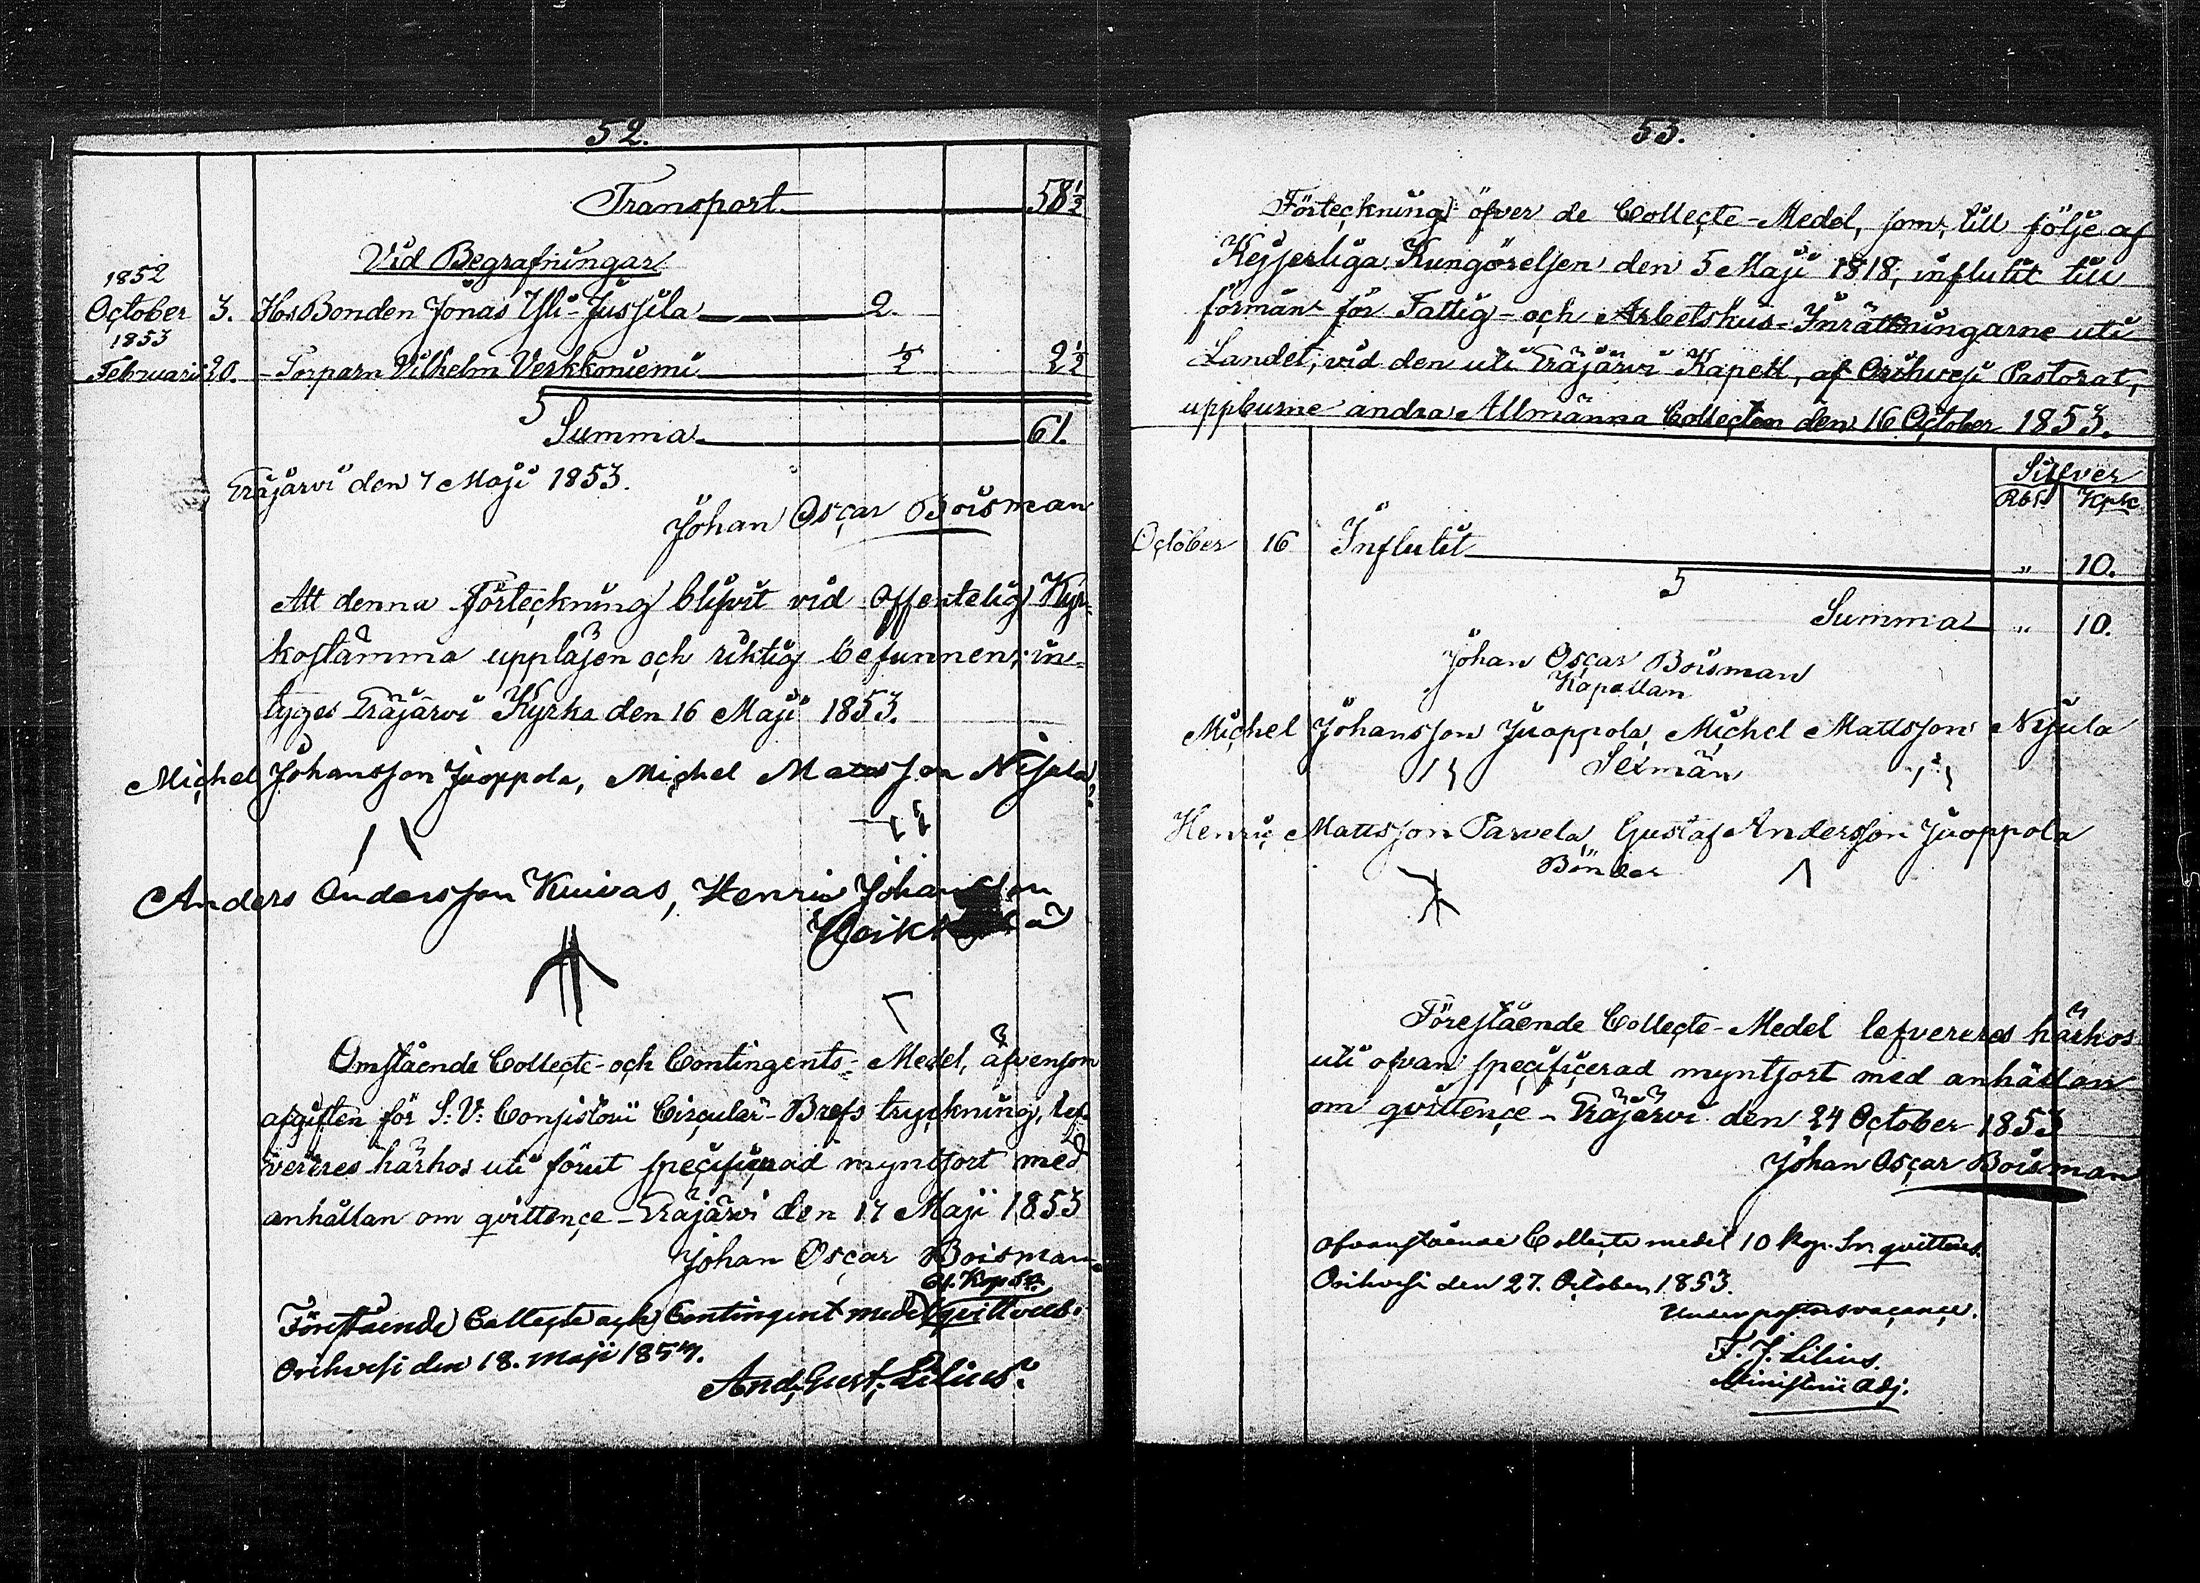 52.
Transport 58 1/2
Vid Begrafningar
1852
October 3. Hos Bonden Jonas Yli-Jussila 2.
1853
Februari 20. - Torparn Vilhelm Verkkoniemi 1/2 2 1/2
Summa 61.
Eräjärvi den 7 Maji 1853.
Johan Oscar Boisman
Att denna Förteckning blifvit vid offentelig Kyr-
kostämma uppläsen och riktig befunnen; in-
tyges Eräjärvi Kyrka den 16 Maji 1853.
Michel Johansson Juoppola, Michel Matsson Nijula
Anders Andersson Kuivas, Henric Johansson
Heikkilä
Omstående Collecte- och Contingents-Medel, äfvensom
afgiften för S. V. Consistorii Circulär-Brefs tryckning, lef-
vereres härhos uti förut specificerad myntsort med
anhållan om qvittence - Eräjärvi den 17 Maji 1853
Johan Oscar Boisman
61. Kop. Sr.
Förestående Collecte och Contingent medel qvitteras.
Orihvesi den 18. Maji 1853.
And. Gust. Lilius.
53.
Förteckning öfver de Collecte-Medel, som, till följe af
Kejserliga Kungörelsen den 5 Maji 1818, influtit till
förmån för Fattig- och Arbetshus-Inrättningarne uti
Landet, vid den uti Eräjärvi Kapell, af Orihvesi Pastorat,
uppburne andra Allmänna Collecten den 16 October 1853.
Silfver
Rbl. Kpk
October 16 Influtit " 10.
Summa " 10.
Johan Oscar Boisman
Kapellan
Michel Johansson Juoppola, Michel Mattsson Nijula
Sexmän
Henric Mattsson Parvela, Gustaf Andersson Juoppola
Bönder
Förestående Collecte-Medel lefvereres härhos
uti ofvan specificerad myntsort med anhållan
om qvittence - Eräjärvi den 24 October 1853
Johan Oscar Boisman
Ofvanstående Collecte medel 10 kop. Sr qvitteras.
Orihvesi den 27. October 1853.
Under pastorsvacance.
F. J. Lilius.
Ministerii Adj.